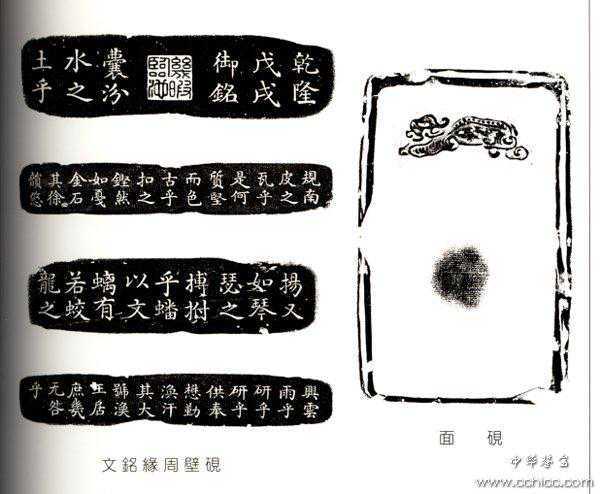 乾隆
戊戌
御銘
幾暇臨池
囊汾
水之
土乎
規南
皮之
瓦乎
是何
質堅
而色
古乎
扣之
鏗然
如戛
金石
其徐
韻悠
揚又
如琴
瑟之
搏拊
乎蟠
以文
螭有
若蛟
龍之
興雲
雨乎
研乎
研乎
供奉
懋勤
渙汗
其大
號渙
王居
庶幾
无咎
乎
硯面
硯壁周緣銘文
www.cchicc.com